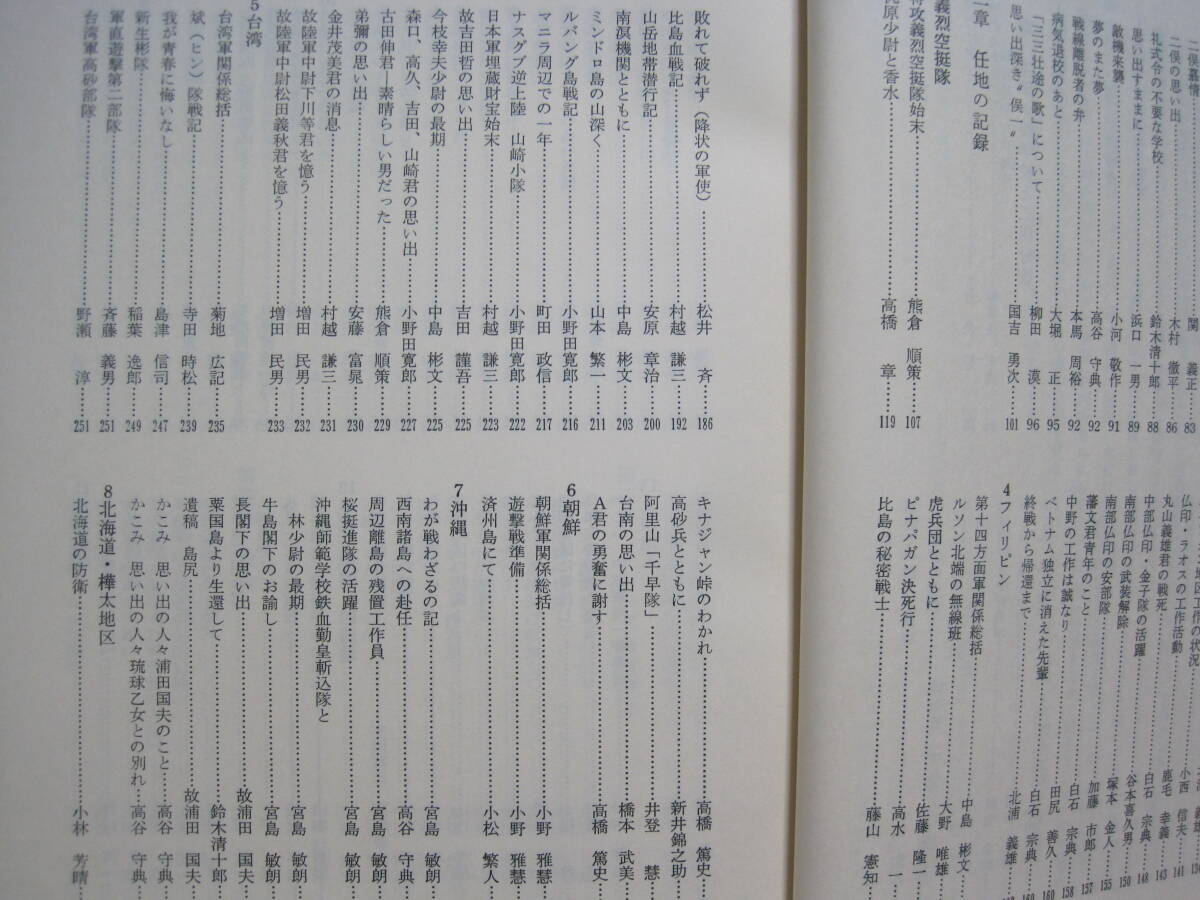 二俣慕情……関　義正……83
二俣の思い出……木村　徹平……86
礼式令の不要な学校……鈴木清十郎……88
思い出すままに……浜口　一男……89
敵機来襲……小河　敬作……91
夢のまた夢……高谷　守典……92
戦線離脱者の弁……本馬　周裕……92
病気退校のあと……大堀　正……95
「三三壮途の歌」について……柳田　漠……96
思い出深き〝俣一〟……国吉　勇次……101
章　任地の記録
義烈空挺隊
特攻義烈空挺隊始末……熊倉　順策……107
梶原少尉と香水……高橋　章……119
仏印・ラオスの工作活動……小西　信夫……141
丸山義雄君の戦死……鹿毛　幸義……143
中部仏印・金子隊の活躍……白石　宗典……148
南部仏印の武装解除……谷本喜久男……150
南部仏印の安部隊……塚本　金人……155
藩文君青年のこと……加藤　市郎……157
中野の工作は誠なり……白石　宗典……158
ベトナム独立に消えた先輩……田尻　善久……160
終戦から帰還まで……白石　宗典……160
北浦　義雄
4 フィリピン
第十四方面軍関係総括……中島　彬文
ルソン北端の無線班……大野　唯雄
虎兵団とともに……佐藤　隆一
ピナパガン決死行……高水　一
比島の秘密戦士……藤山　憲知
敗れて破れず（降状の軍使）……松井　斉……186
比島血戦記……村越　謙三……192
山岳地帯潜行記……安原　章治……200
南溟機関とともに……中島　彬文……203
ミンドロ島の山深く……山本　繁一……211
ルバング島戦記……小野田寛郎……216
マニラ周辺での一年……町田　政信……217
ナスグブ逆上陸　山崎小隊……小野田寛郎……222
日本軍埋蔵財宝始末……村越　謙三……223
故吉田哲の思い出……吉田　謹吾……225
今枝幸夫少尉の最期……中島　彬文……225
森口、高久、吉田、山崎君の思い出……小野田寛郎……227
古田伸君―素晴らしい男だった……熊倉　順策……229
弟彌の思い出……安藤　富晃……230
金井茂美君の消息……村越　謙三……231
故陸軍中尉下川等君を憶う……増田　民男……232
故陸軍中尉松田義秋君を憶う……増田　民男……233
5 台湾
台湾軍関係総括……菊地　広記……235
斌（ヒン）隊戦記……寺田　時松……239
我が青春に悔いなし……島津　信司……247
新生彬隊……稲葉　逸郎……249
軍直遊撃第二部隊……斉藤　義男……251
台湾軍高砂部隊……野瀬　淳……251
キナジャン峠のわかれ……高橋　篤史
高砂兵とともに……新井錦之助
阿里山「千早隊」……井登　慧
台南の思い出……橋本　武美
A君の勇奮に謝す……高橋　篤史
6 朝鮮
朝鮮軍関係総括……小野　雅慧
遊撃戦準備……小野　雅慧
済州島にて……小松　繁人
7 沖縄
わが戦わざるの記……宮島　敏朗
西南諸島への赴任……高谷　守典
周辺離島の残置工作員……宮島　敏朗
桜挺進隊の活躍……宮島　敏朗
沖縄師範学校鉄血勤皇斬込隊と
林少尉の最期……宮島　敏朗
牛島閣下のお諭し……宮島　敏朗
長閣下の思い出……故浦田　国夫
粟国島より生還して……鈴木清十郎
遺稿　島尻……故浦田　国夫
かこみ　思い出の人々浦田国夫のこと……高谷　守典
かこみ　思い出の人々琉球乙女との別れ……高谷　守典
8 北海道・樺太地区
北海道の防衛……小林　芳晴